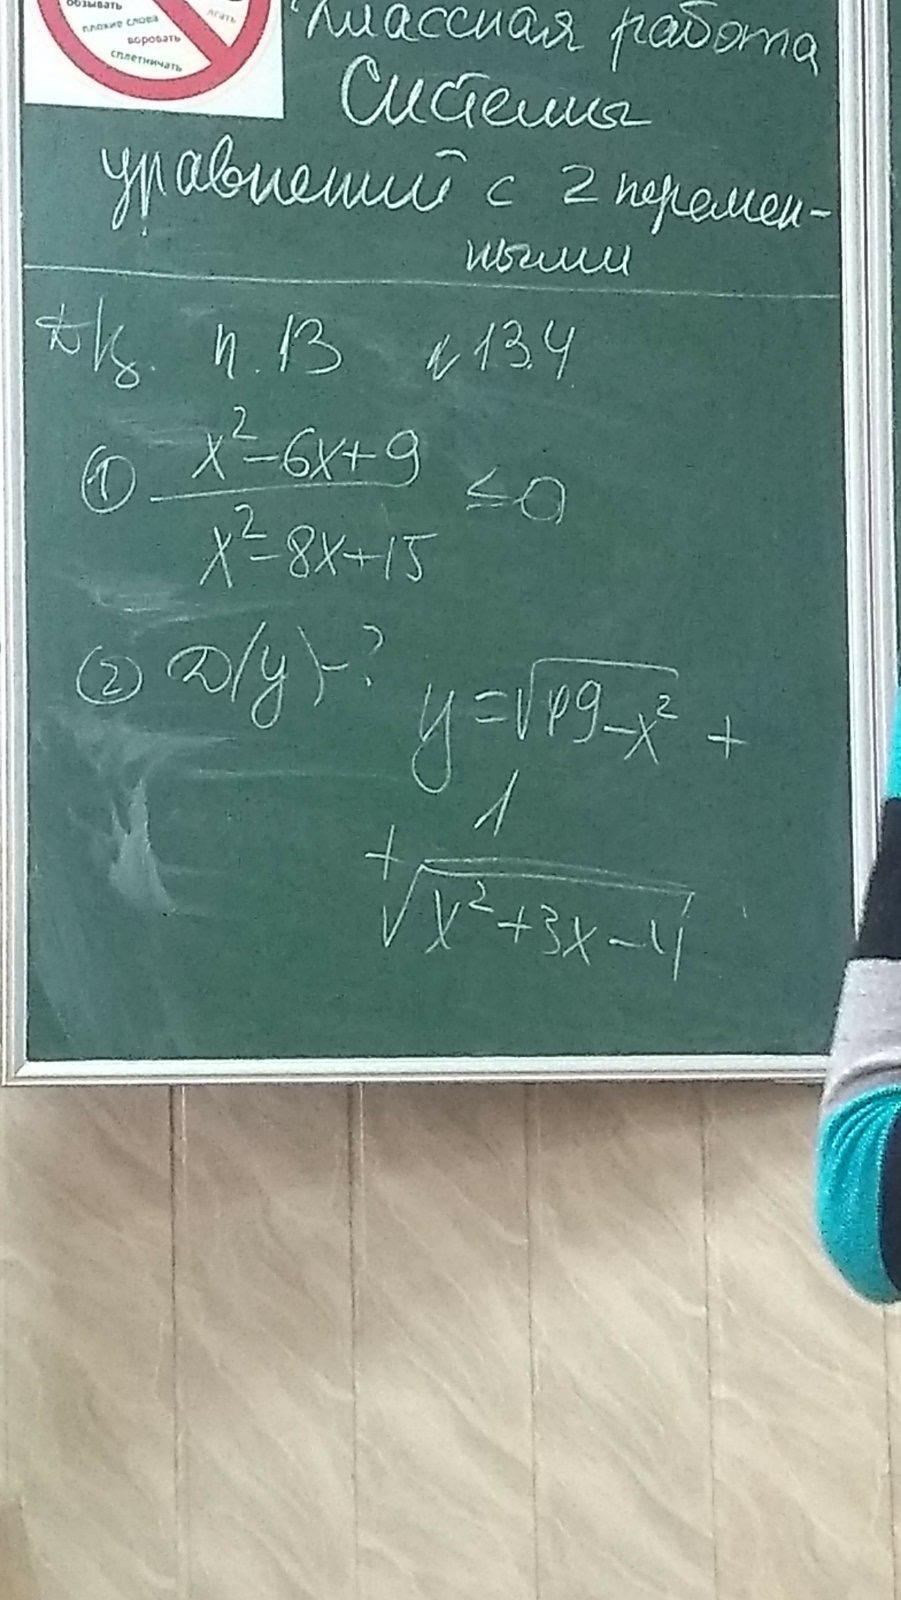 обзывать
лгать
плохие слова
воровать
сплетничать
Классная работа
Системы
уравнений с 2 перемен-
ными
Д/з. п. 13 № 13.4
① x²-6x+9 ≤0
x²-8x+15
② D(y)-? y=√49-x² +
1
+ √x²+3x-4